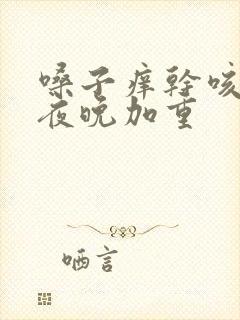 嗓子痒幹咳
夜晚加重
哂言